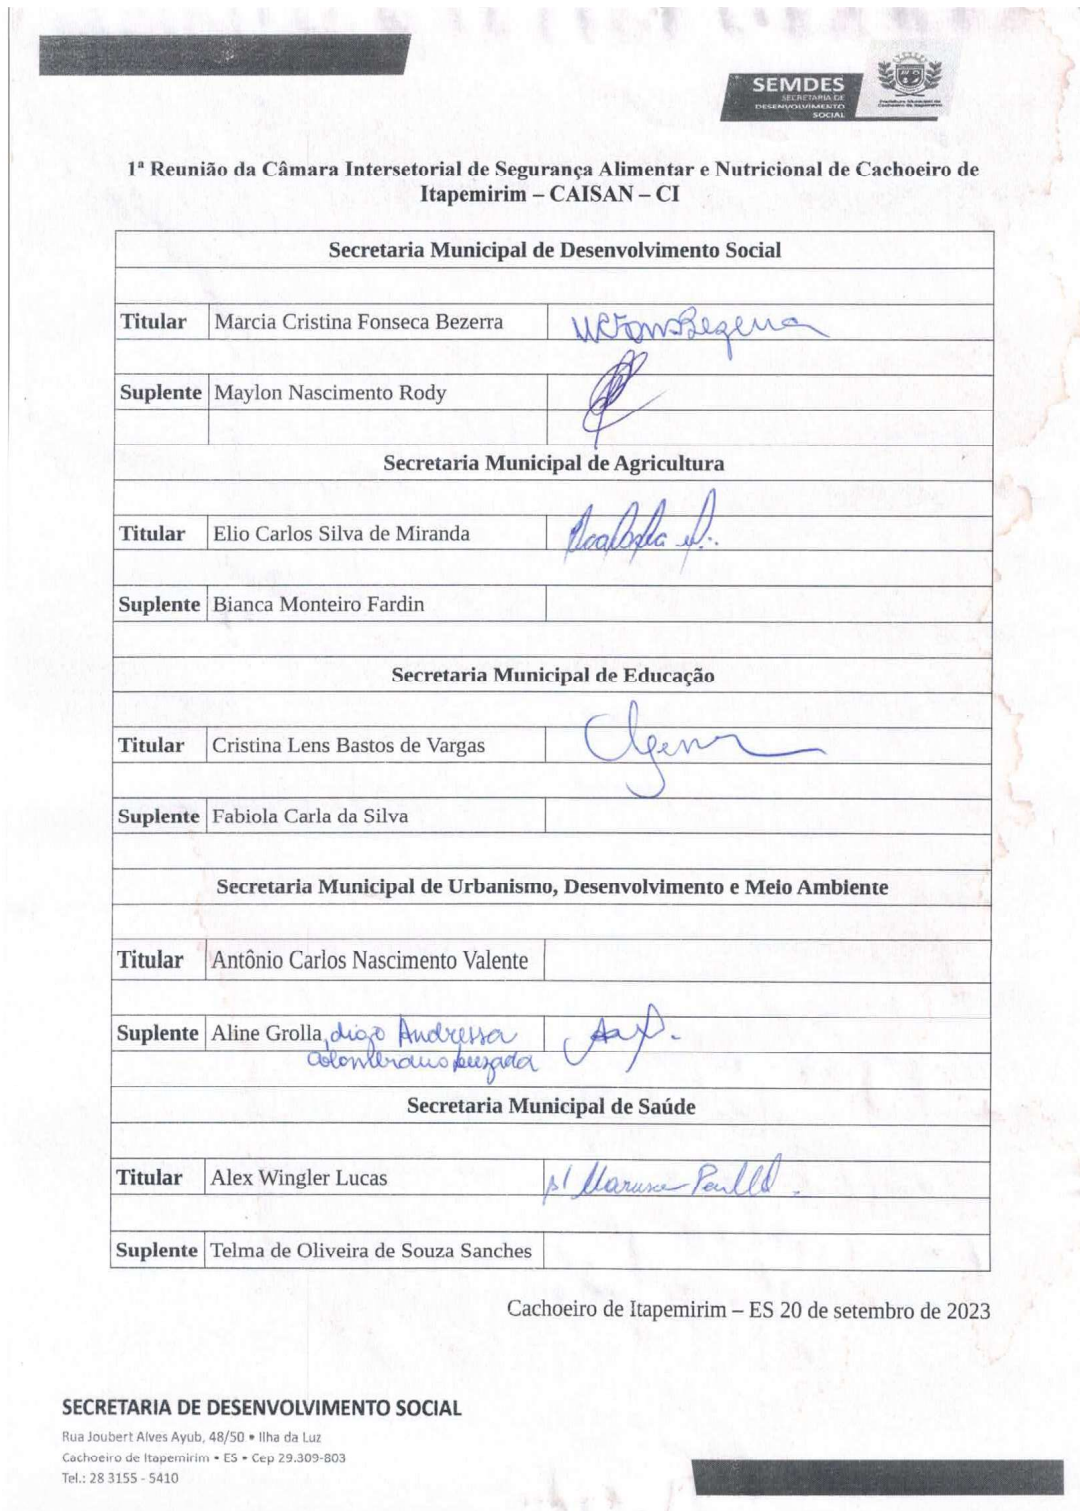 SEMDES
SECRETARIA DE
DESENVOLVIMENTO
SOCIAL
Prefeitura Municipal de
Cachoeiro de Itapemirim
1ª Reunião da Câmara Intersetorial de Segurança Alimentar e Nutricional de Cachoeiro de
Itapemirim – CAISAN – CI
Secretaria Municipal de Desenvolvimento Social
Titular Marcia Cristina Fonseca Bezerra
Suplente Maylon Nascimento Rody
Secretaria Municipal de Agricultura
Titular Elio Carlos Silva de Miranda
Suplente Bianca Monteiro Fardin
Secretaria Municipal de Educação
Titular Cristina Lens Bastos de Vargas
Suplente Fabiola Carla da Silva
Secretaria Municipal de Urbanismo, Desenvolvimento e Meio Ambiente
Titular Antônio Carlos Nascimento Valente
Suplente Aline Grolla, digo Andressa
Secretaria Municipal de Saúde
Titular Alex Wingler Lucas p/
Suplente Telma de Oliveira de Souza Sanches
Cachoeiro de Itapemirim – ES 20 de setembro de 2023
SECRETARIA DE DESENVOLVIMENTO SOCIAL
Rua Joubert Alves Ayub, 48/50 • Ilha da Luz
Cachoeiro de Itapemirim • ES • Cep 29.309-803
Tel.: 28 3155 - 5410